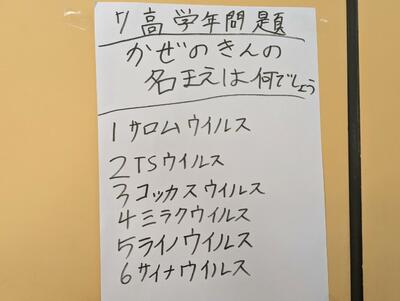 7 高学年問題
かぜのきんの
名まえは何でしょう
1 サロムウイルス
2 TSウイルス
3 コッカスウイルス
4 ミラクウイルス
5 ライノウイルス
6 サイナウイルス